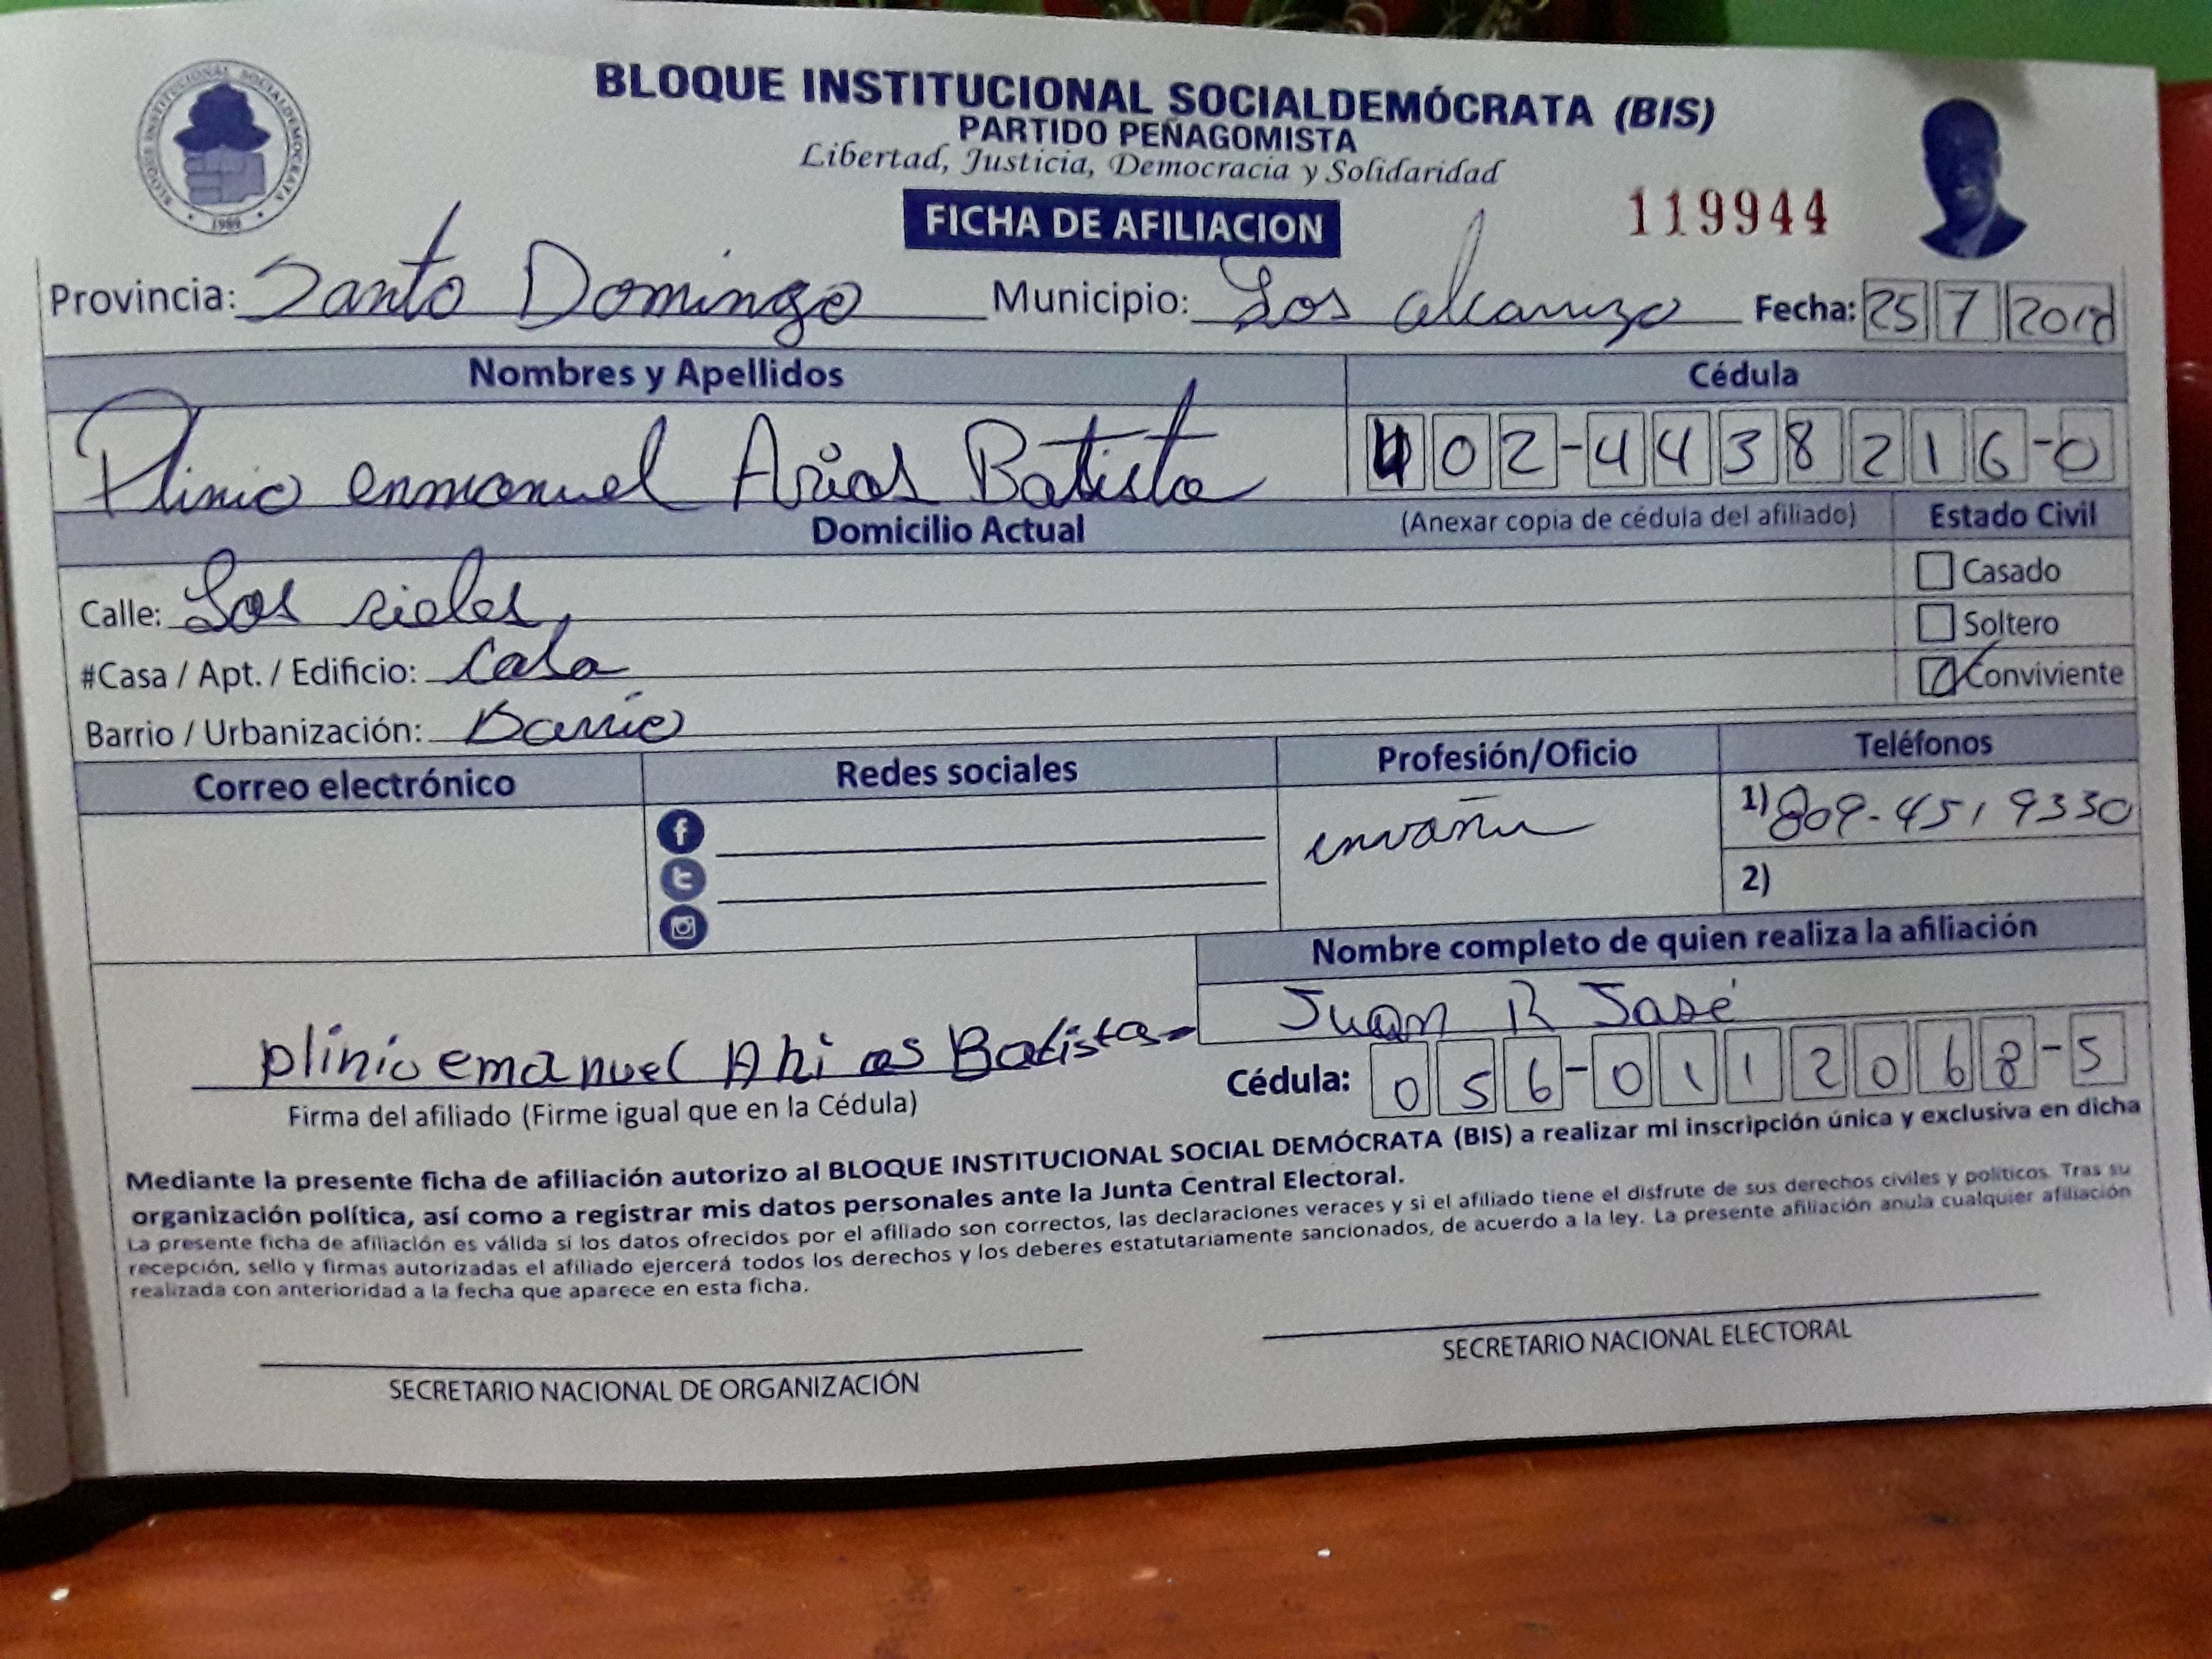 BLOQUE INSTITUCIONAL SOCIALDEMÓCRATA (BIS)
PARTIDO PEÑAGOMISTA
Libertad, Justicia, Democracia y Solidaridad
BLOQUE INSTITUCIONAL SOCIALDEMOCRATA
1989
FICHA DE AFILIACION
119944
Provincia: Santo Domingo Municipio: Los alcarrizo Fecha: 25 7 2018
Nombres y Apellidos Cédula
Plinio enmanuel Arias Batista 402-4438216-0
Domicilio Actual (Anexar copia de cédula del afiliado) Estado Civil
Casado
Calle: Los rieles
Soltero
#Casa / Apt. / Edificio: Casa
Conviviente
Barrio / Urbanización: Barrio
Correo electrónico Redes sociales Profesión/Oficio Teléfonos
1) 809-451 9330
2)
Nombre completo de quien realiza la afiliación
Juan R José
plinio emanuel Ahi as Batista
Cédula: 056-0112068-5
Firma del afiliado (Firme igual que en la Cédula)
Mediante la presente ficha de afiliación autorizo al BLOQUE INSTITUCIONAL SOCIAL DEMÓCRATA (BIS) a realizar mi inscripción única y exclusiva en dicha
organización política, así como a registrar mis datos personales ante la Junta Central Electoral.
La presente ficha de afiliación es válida si los datos ofrecidos por el afiliado son correctos, las declaraciones veraces y si el afiliado tiene el disfrute de sus derechos civiles y políticos. Tras su
recepción, sello y firmas autorizadas el afiliado ejercerá todos los derechos y los deberes estatutariamente sancionados, de acuerdo a la ley. La presente afiliación anula cualquier afiliación
realizada con anterioridad a la fecha que aparece en esta ficha.
SECRETARIO NACIONAL DE ORGANIZACIÓN
SECRETARIO NACIONAL ELECTORAL